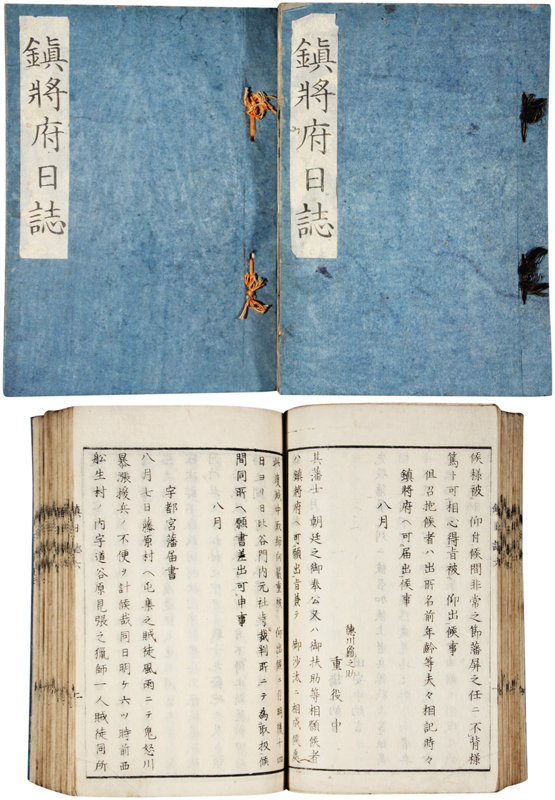 鎮將府日誌
鎮將府日誌
候様被　仰付候間非常之節藩屏之任ニ不背様
篤ト可相心得旨被　仰出候事
但召抱候者ハ出所名前年齢等夫々相記時々
鎮將府ヘ可届出候事
八月
徳川龜之助
重役中
其藩士　朝廷之御奉公又ハ御扶助等相願候者
鎮將府ヘ可願出旨兼テ　御沙汰ニ相成候處
裁判所ニテ為取扱候
間同所ヘ願書差出可申事
八月
宇都宮藩届書
八月七日藤原村ヘ屯集之賊徒風雨ニテ鬼怒川
暴漲援兵ノ不便ヲ計候哉同日明ケ六ツ時前西
舩生村ノ内字道谷原見張之獵師一人賊徒同所